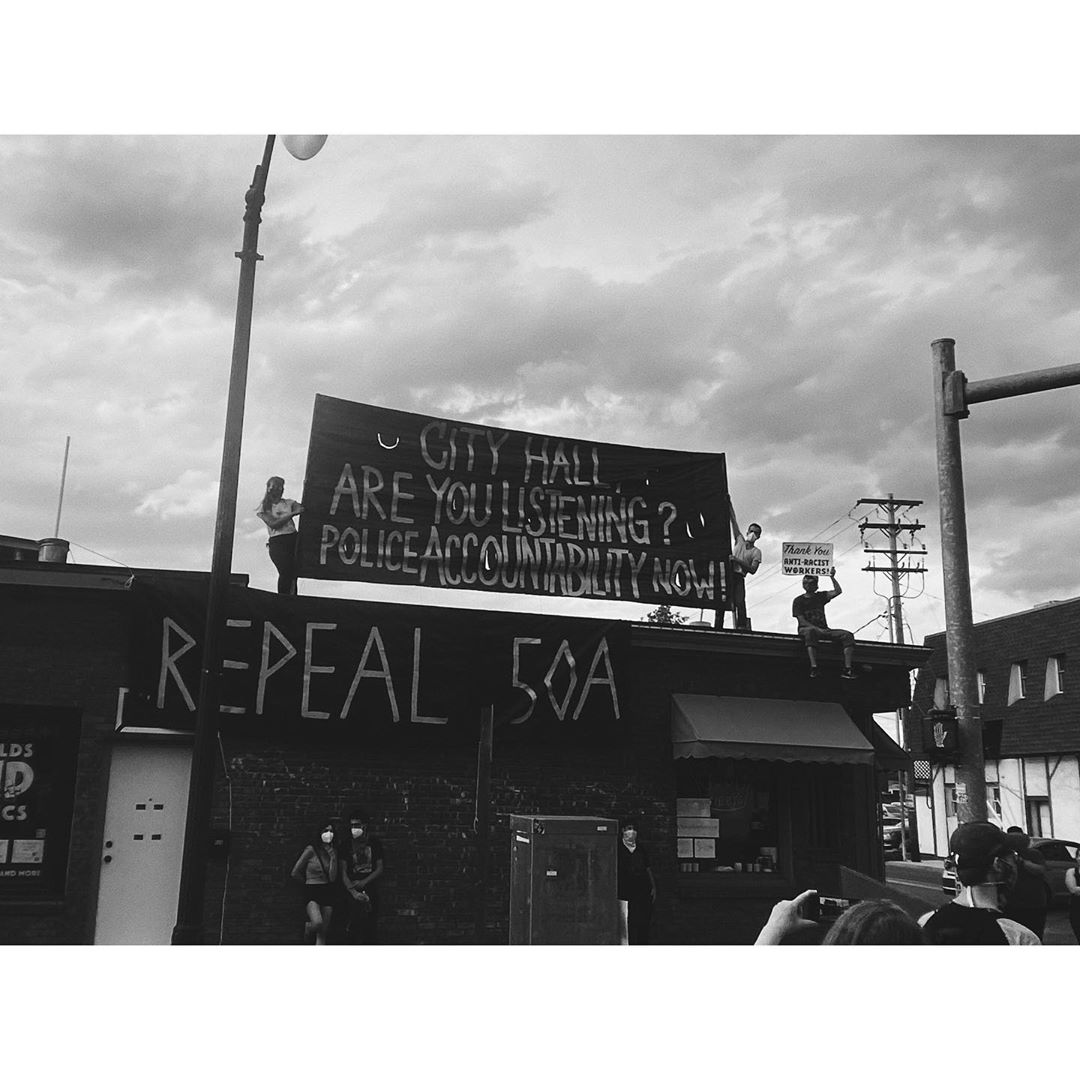 CITY HALL,
ARE YOU LISTENING?
POLICE ACCOUNTABILITY NOW!
Thank You
ANTI-RACIST
WORKERS!
REPEAL 50A
LDS
CS
AND MORE